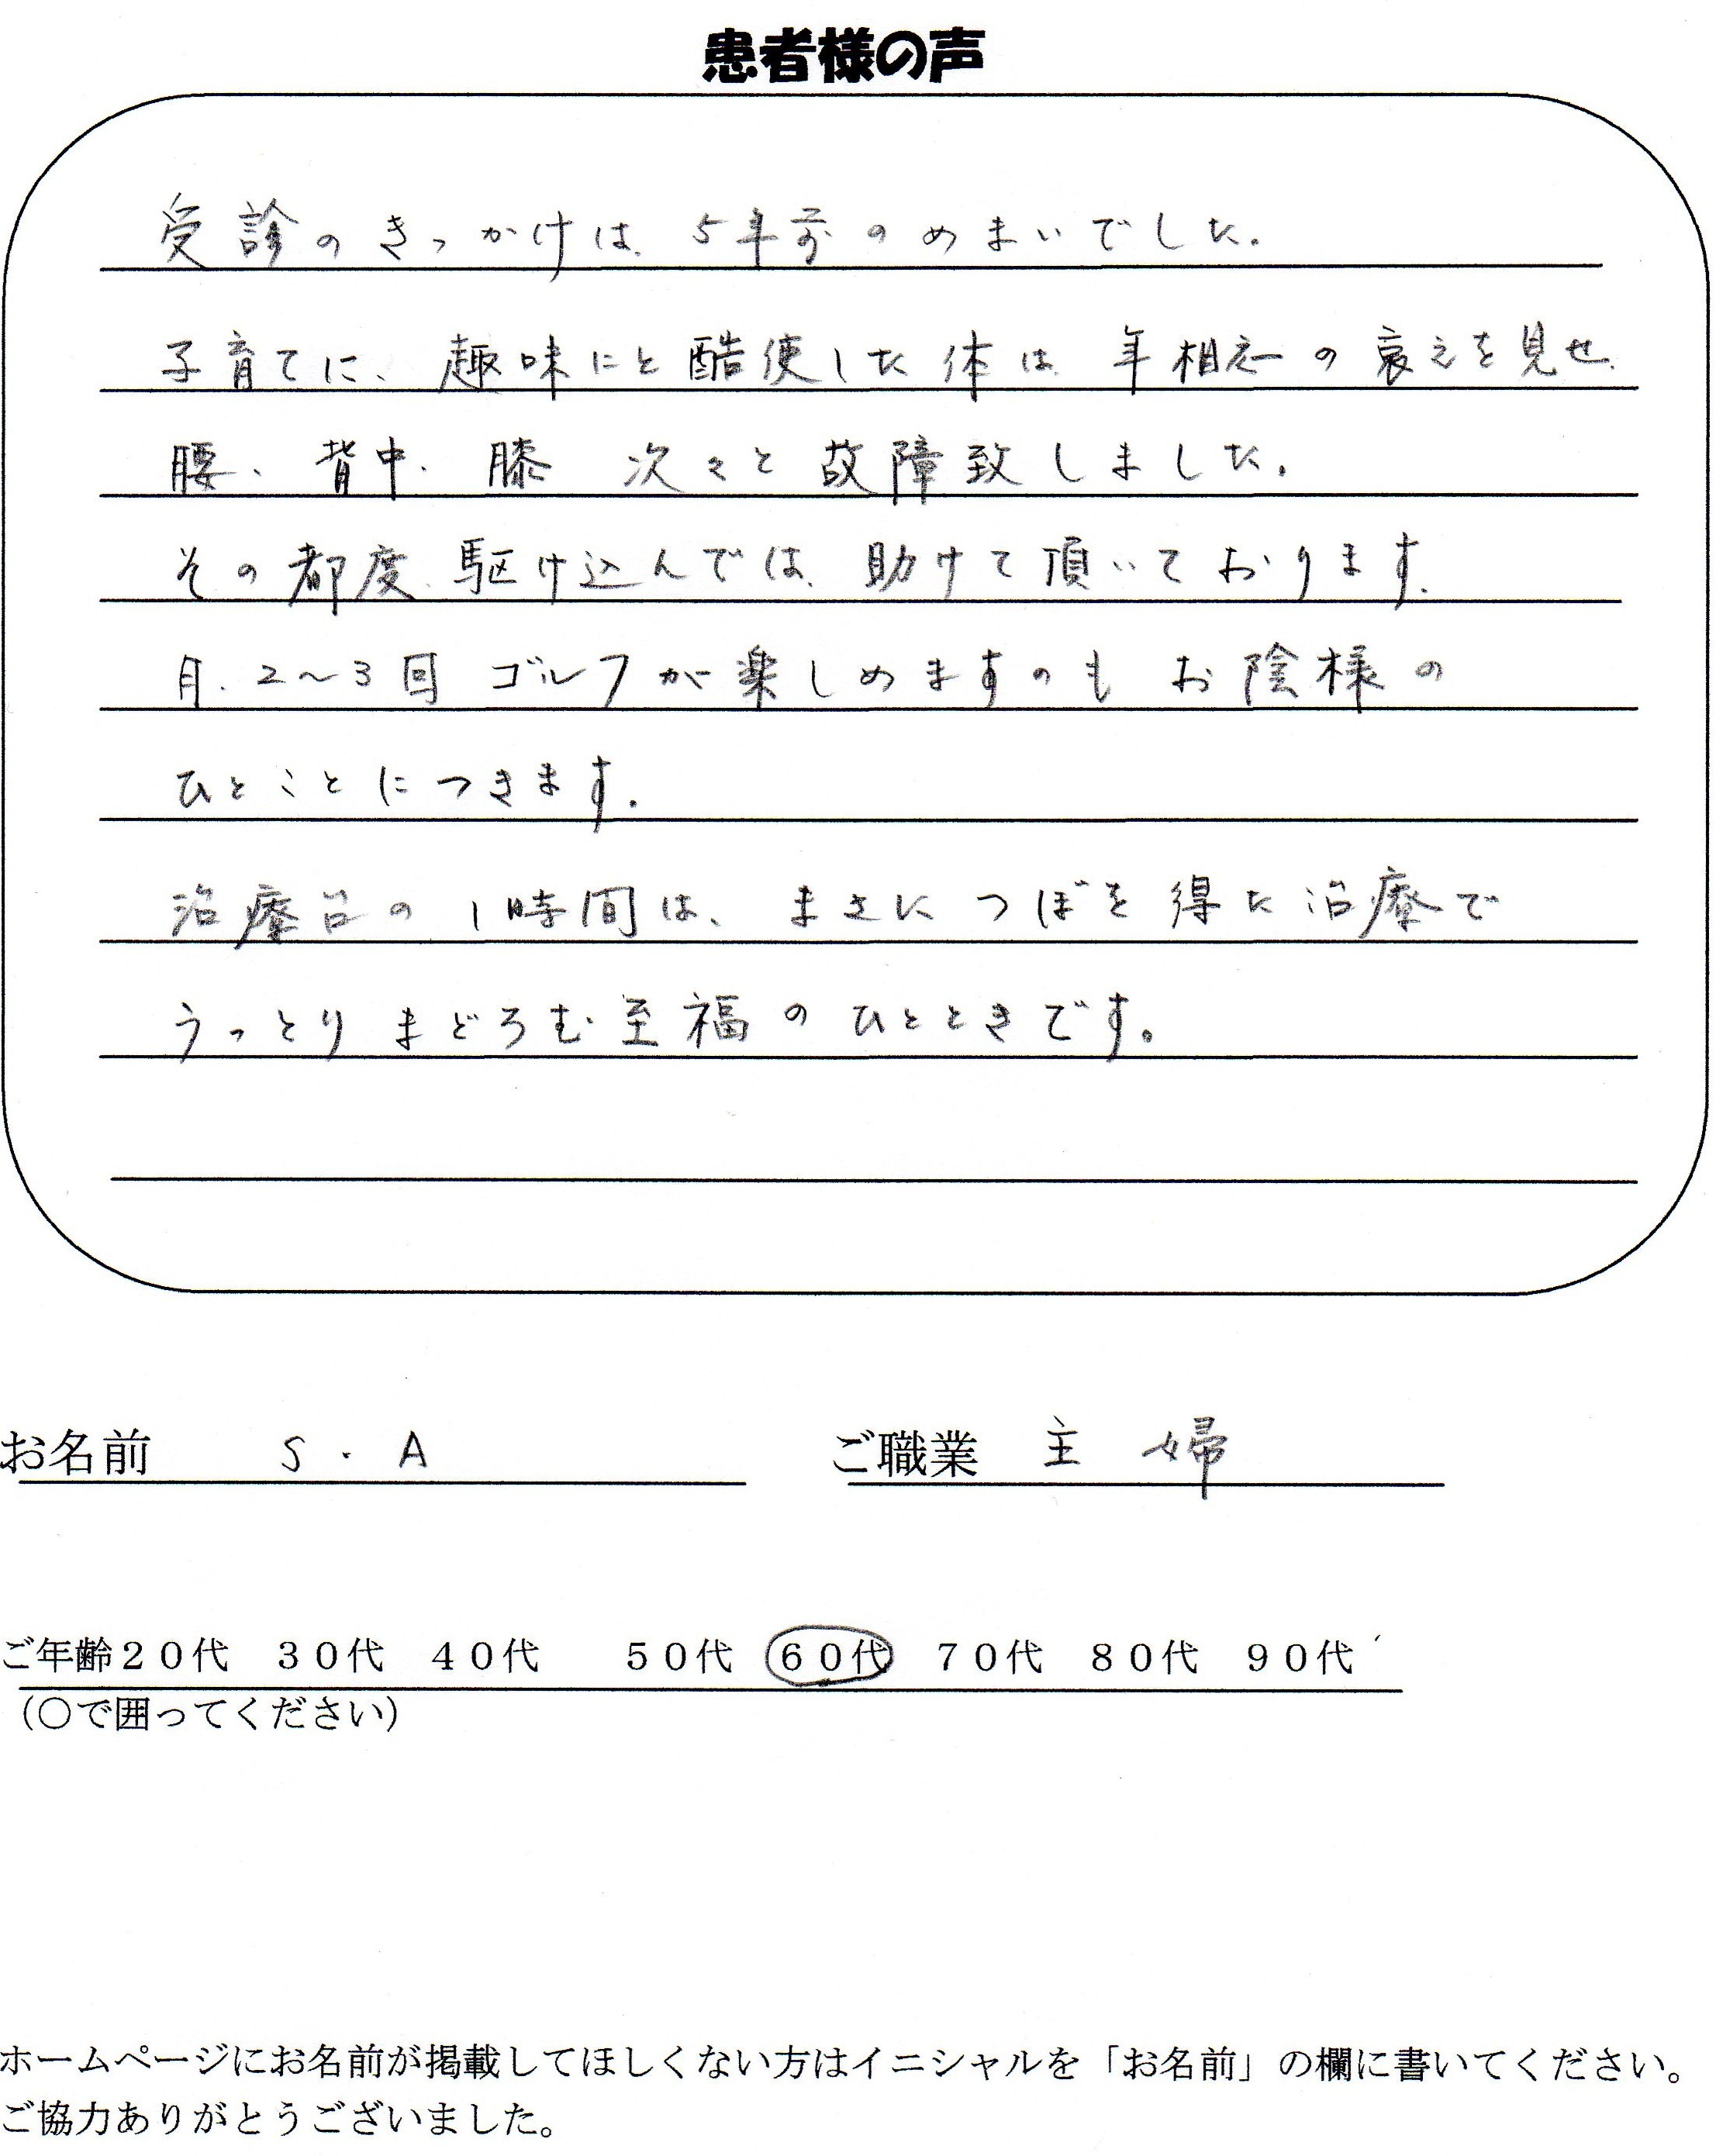 患者様の声
受診のきっかけは、5年前のめまいでした。
子育てに、趣味にと酷使した体は、年相応の衰えを見せ、
腰、背中、膝 次々と故障致しました。
その都度、駆け込んでは、助けて頂いております。
月、2〜3回 ゴルフが楽しめますのも お陰様の
ひとことにつきます。
治療台の1時間は、まさに つぼを得た治療で
うっとり まどろむ至福のひとときです。
お名前 S・A ご職業 主婦
ご年齢20代 30代 40代 50代 60代 70代 80代 90代
（〇で囲ってください）
ホームページにお名前が掲載してほしくない方はイニシャルを「お名前」の欄に書いてください。
ご協力ありがとうございました。